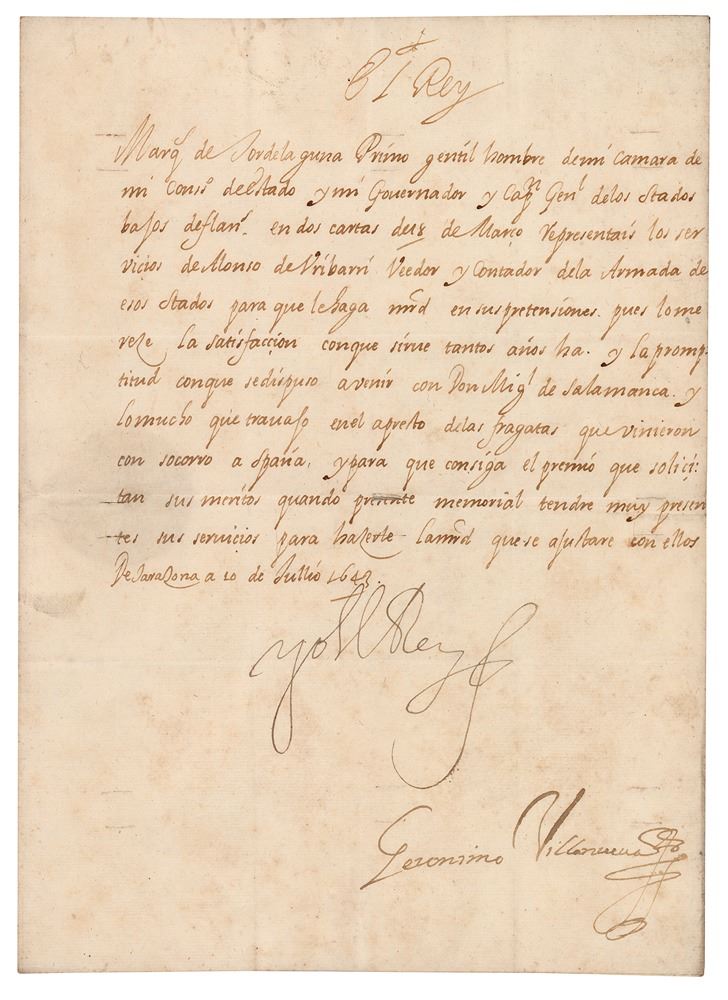 El Rey
Marq.s de Tordelaguna Primo gentil hombre demi Camara de
mi Cons.o de estado y mi Governador y Cap.n Gen.l delos stados
bajos deflan.s en dos cartas de 18 de Março representais los ser
vicios de Alonso de Vribarri Veedor y Contador dela Armada de
esos stados para que le haga mrd en sus pretensiones. pues lo me
reze la satisfaccion conque sirue tantos años ha. y la promp-
titud conque sedispuso avenir con Don Mig.l de Salamanca. y
lo mucho que trauajo en el apresto delas fragatas que vinieron
con socorro a spaña, y para que consiga el premio que solici:
tan sus meritos quando presente memorial tendre muy presen
tes sus servicios para hazerle la mrd que se ajustare con ellos
De Tarazona a 10 de Jullio 1643.
yo el Rey
Geronimo Villanueua